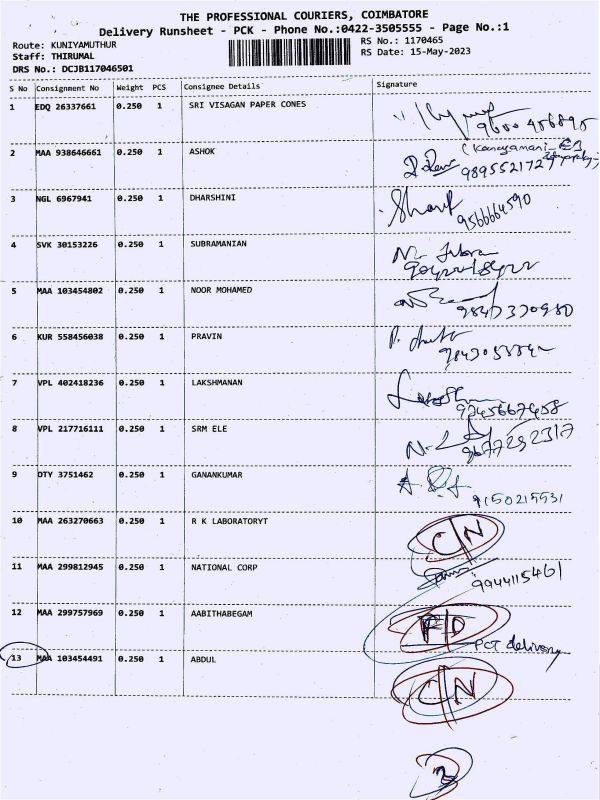 THE PROFESSIONAL COURIERS, COIMBATORE
Delivery Runsheet - PCK - Phone No.:0422-3505555 - Page No.:1
Route: KUNIYAMUTHUR RS No.: 1170465
Staff: THIRUMAL RS Date: 15-May-2023
DRS No.: DCJB117046501
S No Consignment No Weight PCS Consignee Details Signature
1 EDQ 26337661 0.250 1 SRI VISAGAN PAPER CONES
2 MAA 938646661 0.250 1 ASHOK
3 NGL 6967941 0.250 1 DHARSHINI
9566664590
4 SVK 30153226 0.250 1 SUBRAMANIAN
5 MAA 103454802 0.250 1 NOOR MOHAMED
6 KUR 558456038 0.250 1 PRAVIN
7 VPL 402418236 0.250 1 LAKSHMANAN
8 VPL 217716111 0.250 1 SRM ELE
9677292317
9 OTY 3751462 0.250 1 GANANKUMAR
9150215531
10 MAA 263270663 0.250 1 R K LABORATORYT C/N
11 MAA 299812945 0.250 1 NATIONAL CORP
9944115461
12 MAA 299757969 0.250 1 AABITHABEGAM F/D
PCT delivery
13 MAA 103454491 0.250 1 ABDUL C/N
3